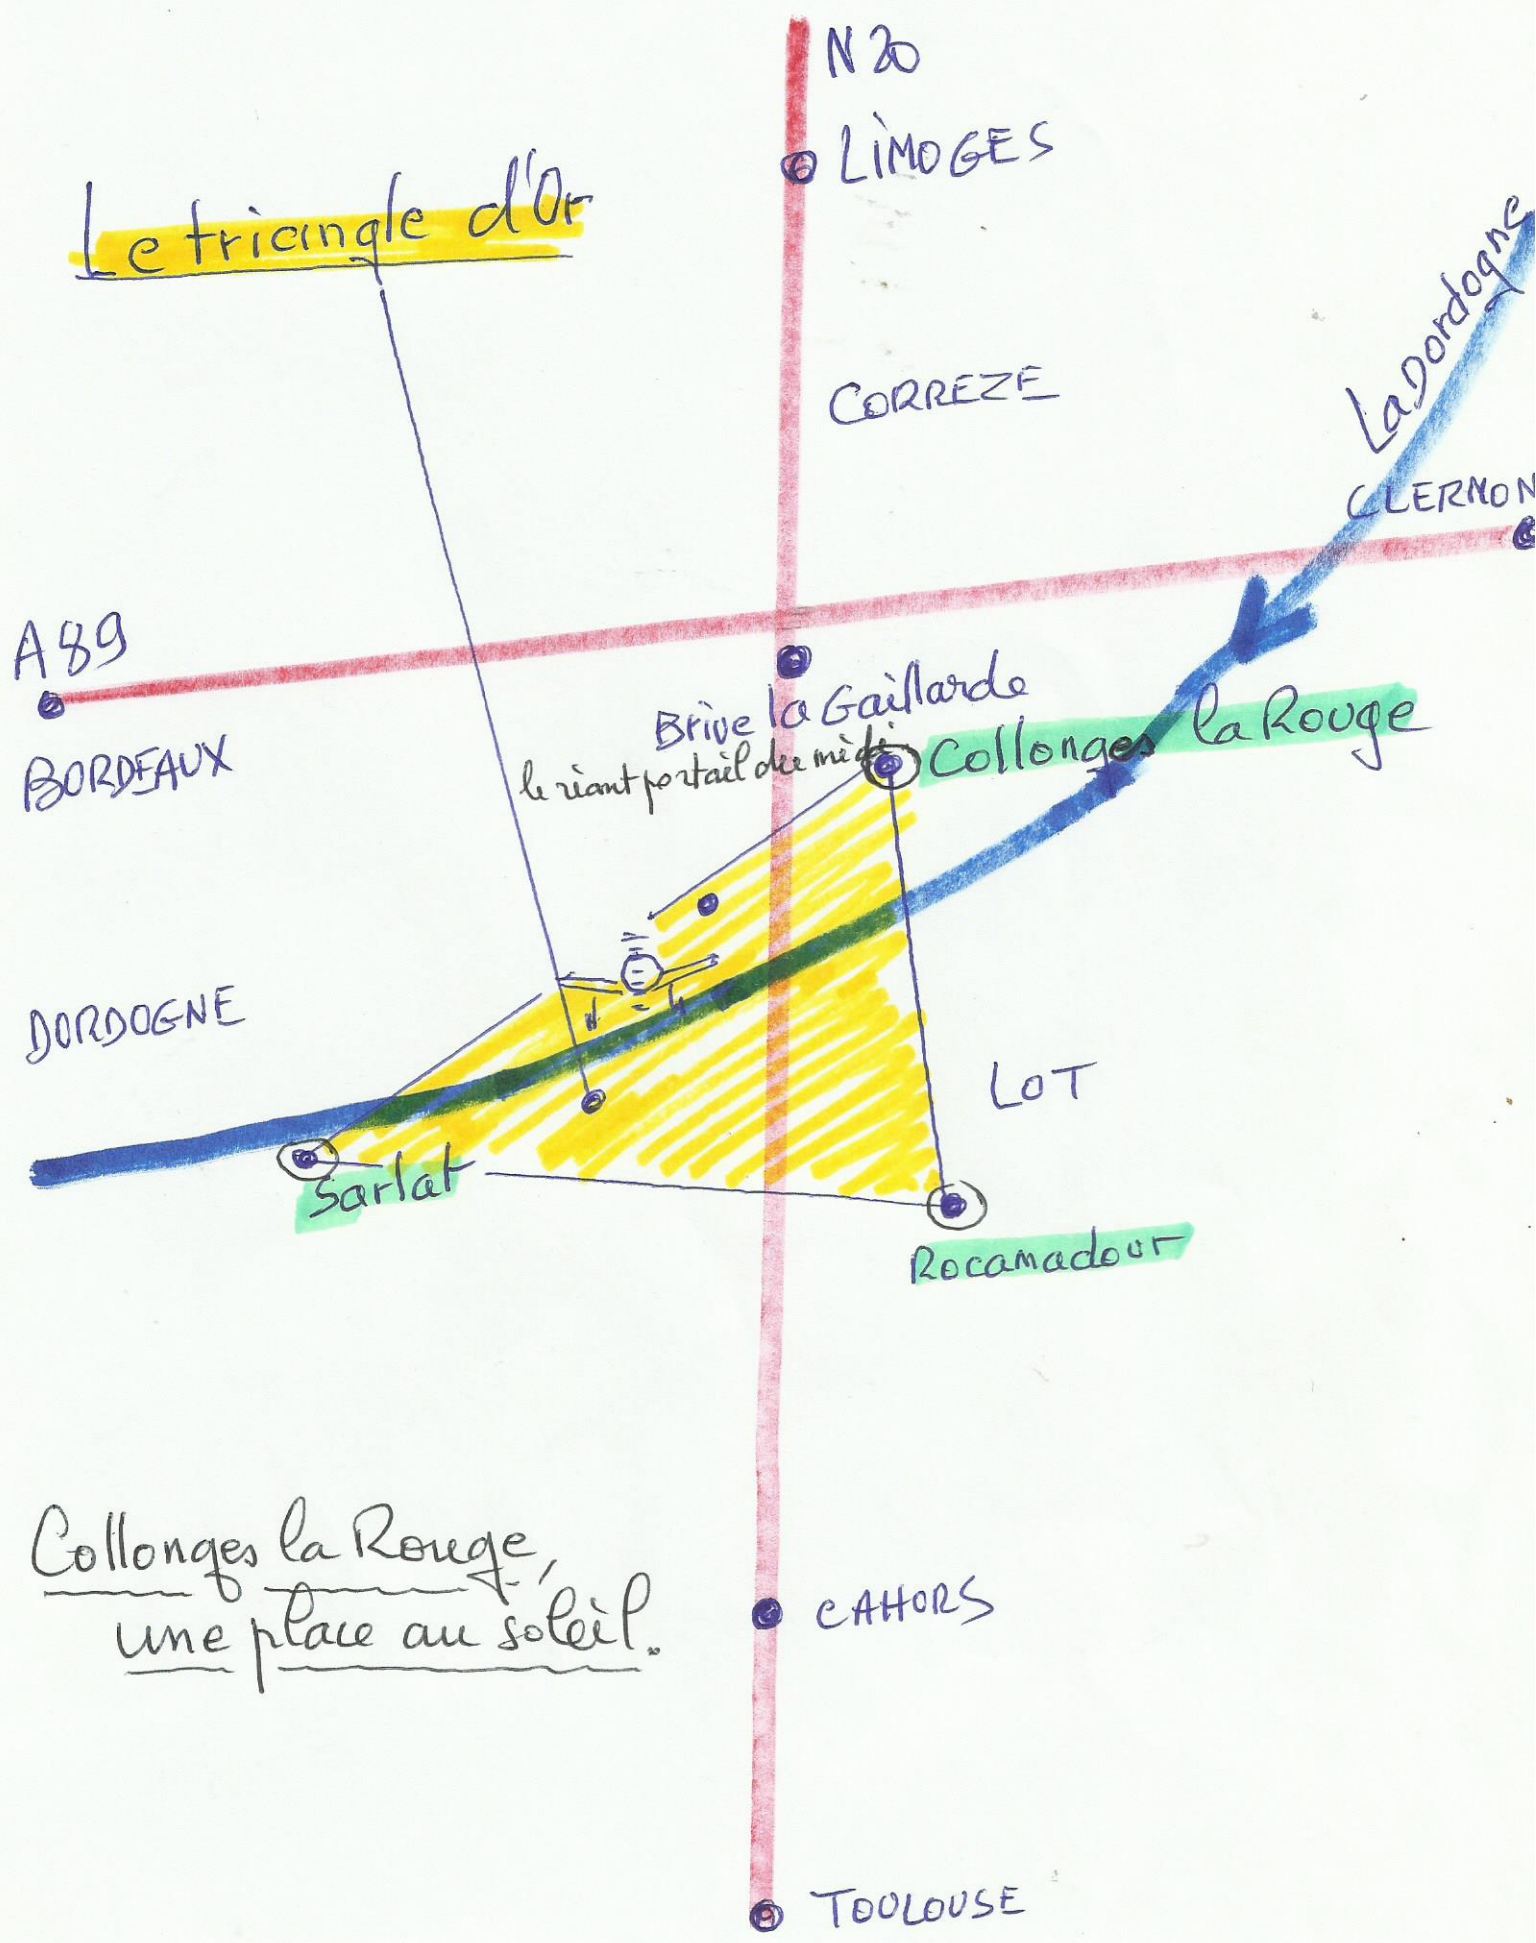 N20
LIMOGES
Le triangle d'Or
La Dordogne
CORREZE
CLERMON
A 89
BORDEAUX
Brive la Gaillarde
le riant portail du midi
Collonges la Rouge
DORDOGNE
LOT
Sarlat
Rocamadour
Collonges la Rouge,
une place au soleil.
CAHORS
TOULOUSE